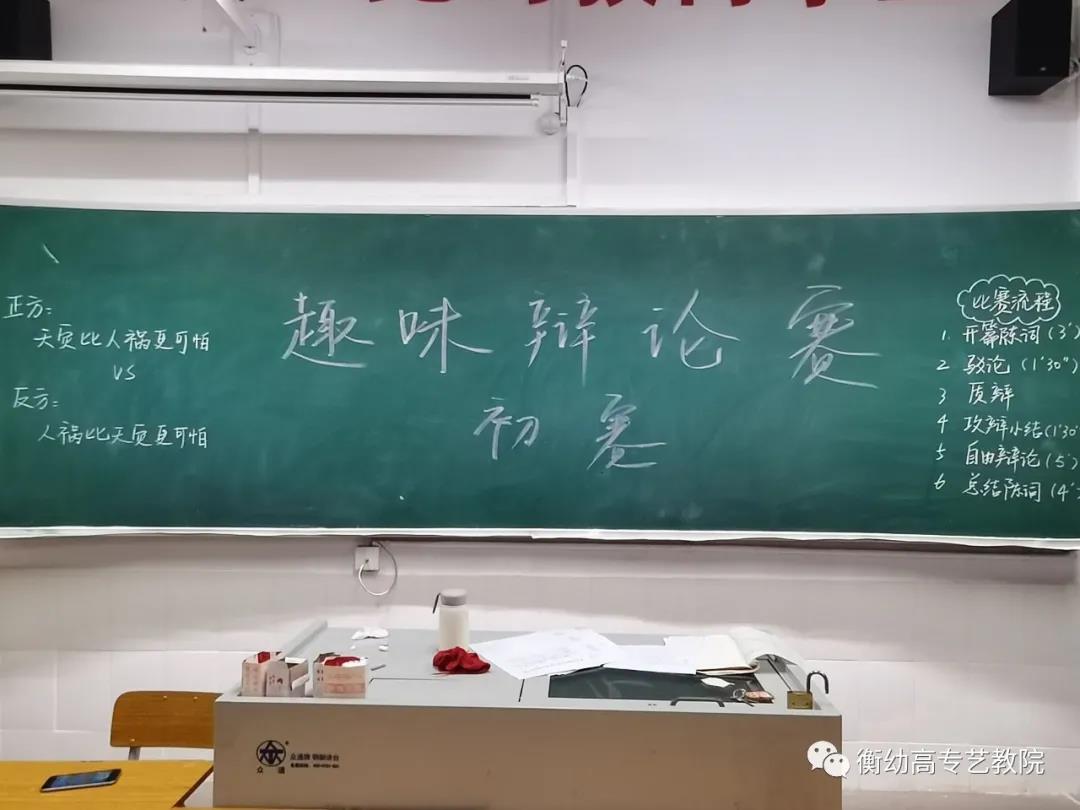 正方:
天灾比人祸更可怕
VS
反方:
人祸比天灾更可怕
趣味辩论赛
初赛
比赛流程
1. 开幕陈词(3')
2 驳论(1'30")
3 质辩
4 攻辩小结(1'30"
5 自由辩论(5')
6 总结陈词(4'
众通
衡幼高专艺教院